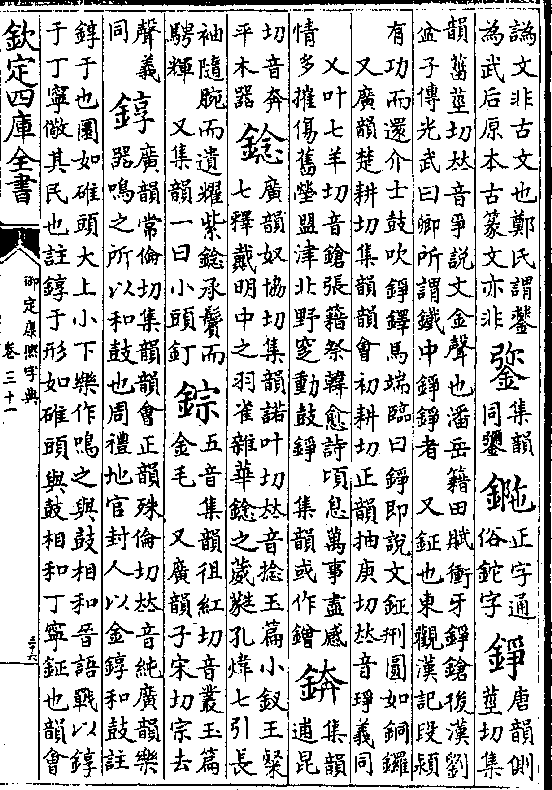 譌文非古文也鄭氏謂鑋
為武后原本古篆文亦非
集韻
同鑋
正字通
俗鉈字
錚
唐韻側
莖切集
韻甾莖切𠀤音爭說文金聲也潘岳籍田賦衝牙錚鎗後漢劉
盆子傳光武曰卿所謂鐵中錚錚者 又鉦也東觀漢記段熲
有功而還介士鼓吹錚鐸馬端臨曰錚即說文鉦形圓如銅鑼
又廣韻楚耕切集韻韻會初耕切正韻抽庚切𠀤音琤義同
又叶七羊切音鎗張籍祭韓愈詩頃息萬事盡感
情多摧傷舊塋盟津北野窆動鼓錚 集韻或作鏳
錛
集韻
逋昆
切音奔
平木器
錜
廣韻奴協切集韻諾叶切𠀤音捻玉篇小釵王粲
七釋戴明中之羽雀雜華錜之葳蕤孔煒七引長
袖隨腕而遺耀紫錜承鬢而
騁輝 又集韻一曰小頭釘
錝
五音集韻徂紅切音叢玉篇
金毛 又廣韻子宋切宗去
聲義
同
錞
廣韻常倫切集韻韻會正韻殊倫切𠀤音純廣韻樂
器鳴之所以和鼓也周禮地官封人以金錞和鼓註
錞于也圜如碓頭大上小下樂作鳴之與鼓相和晉語戰以錞
于丁寧儆其民也註錞于形如碓頭與鼓相和丁寧鉦也韻會
欽定四庫全書
御定康熙字典
卷三十一